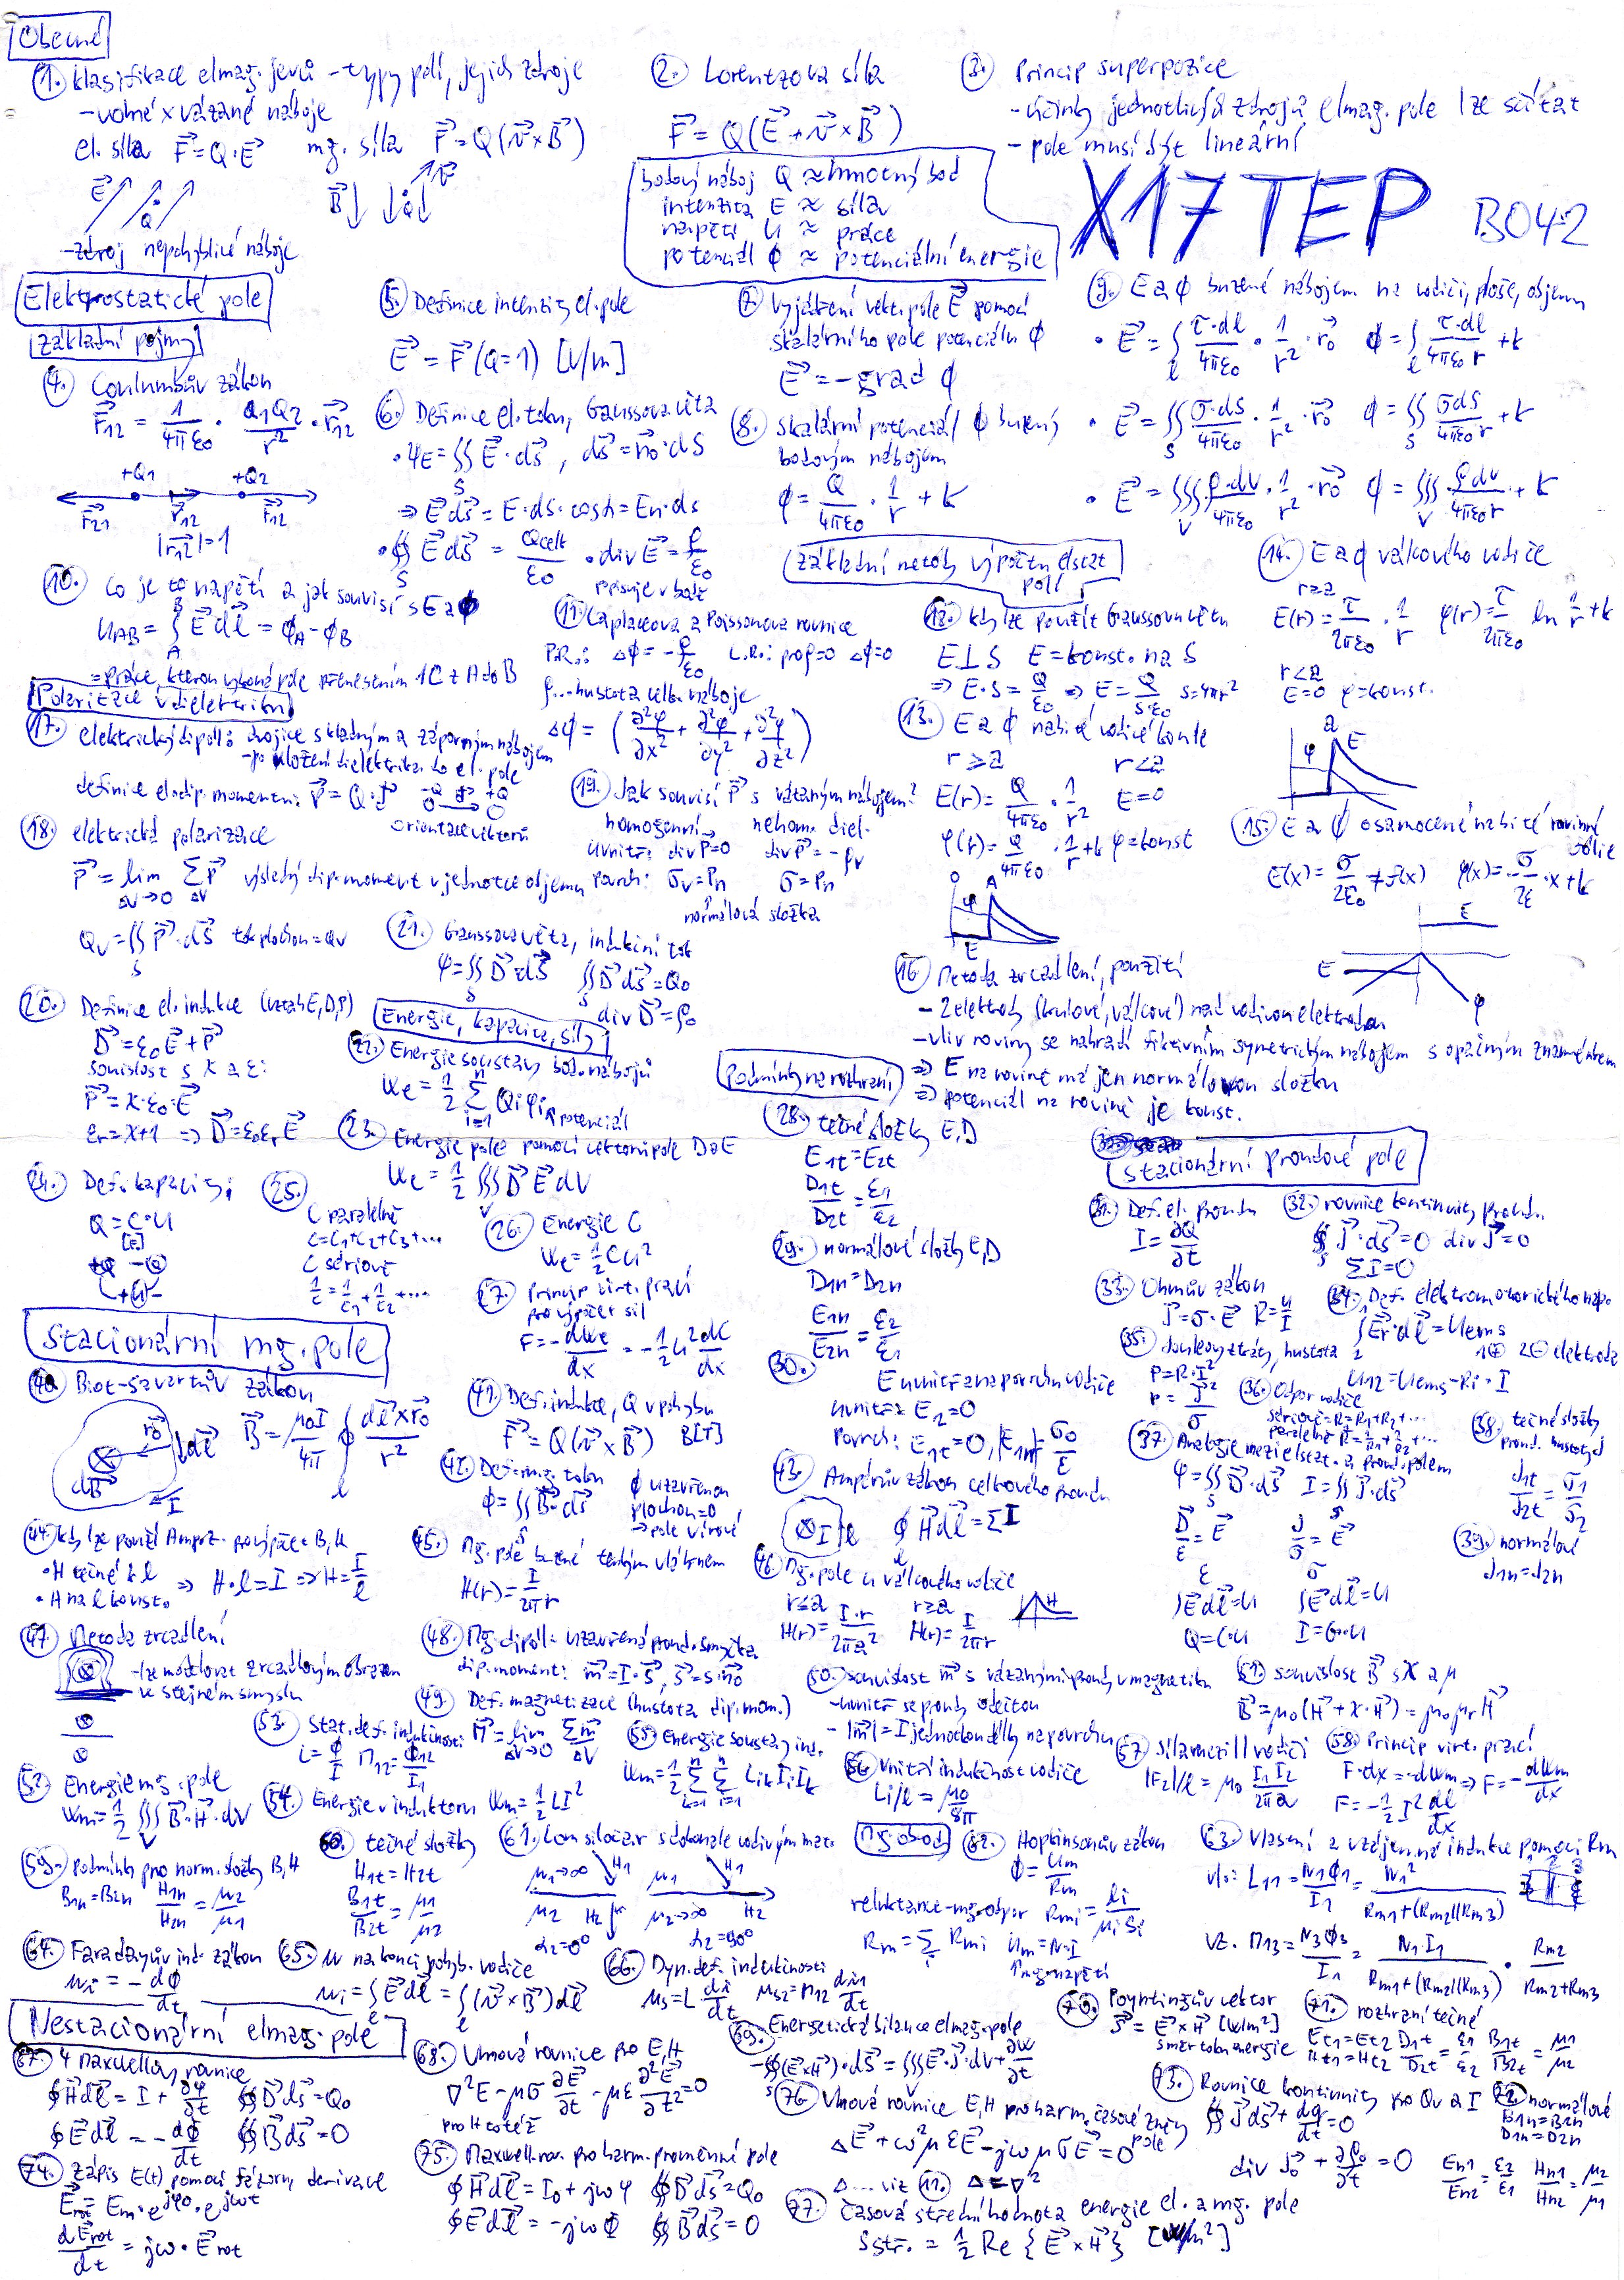 Obecné
1. klasifikace elmag. jevů - typy polí, jejich zdroje
- volné x vázané náboje
el. síla F=Q·E mg. síla F=Q(v×B)
E Q B Q v
- zdroj nepohyblivé náboje
2. Lorentzova síla
F=Q(E+v×B)
bodový náboj Q ≈ hmotný bod
intenzita E ≈ síla
napětí U ≈ práce
potenciál ϕ ≈ potenciální energie
3. Princip superpozice
- účinky jednotlivých zdrojů elmag. pole lze sčítat
- pole musí být lineární
X17TEP B042
Elektrostatické pole
základní pojmy
4. Coulumbův zákon
F12 = 1/4πε0 · Q1Q2/r² · r12
+Q1 +Q2
F21 r12 F12
|r12|=1
5. Definice intenzity el. pole
E = F(Q=1) [V/m]
6. Definice el. toku, Gaussova věta
· ΨE = ∬S E·dS, dS = n0·dS
⇒ E dS = E·dS·cosα = En·dS
· ∯S E dS = Qcelk/ε0 · div E = ρ/ε0
popisuje v bodě
7. vyjádření vekt. pole E pomocí
skalárního pole potenciálu ϕ
E = -grad ϕ
8. skalární potenciál ϕ buzený
bodovým nábojem
ϕ = Q/4πε0 · 1/r + k
9. E a ϕ buzené nábojem na vodiči, ploše, objemu
· E = ∫l τ·dl/4πε0 · 1/r² · r0 ϕ = ∫l τ·dl/4πε0 r + k
· E = ∬S σ·dS/4πε0 · 1/r² · r0 ϕ = ∬S σdS/4πε0 r + k
· E = ∭V ρ·dV/4πε0 · 1/r² · r0 ϕ = ∭V ρdV/4πε0 r + k
10. Co je to napětí a jak souvisí s E a ϕ
UAB = ∫A B E dl = ϕA - ϕB
= práce, kterou vykoná pole přenesením 1C z A do B
základní metody výpočtu elstat
polí
11. Laplaceova a Poissonova rovnice
P.R.: Δϕ = -ρ/ε0 L.R.: pro ρ=0 Δϕ=0
ρ... hustota celk. náboje
Δϕ = (∂²φ/∂x² + ∂²φ/∂y² + ∂²φ/∂z²)
12. kdy lze použít Gaussovu větu
E⊥S E=konst. na S
⇒ E·S = Q/ε0 ⇒ E = Q/S·ε0 S=4πr²
13. E a ϕ nabité vodivé koule
r≥a r<a
E(r) = Q/4πε0 · 1/r² E=0
φ(r) = Q/4πε0 · 1/r + k φ=konst
14. E a ϕ válcového vodiče
r≥a
E(r) = τ/2πε0 · 1/r φ(r) = τ/2πε0 ln 1/r + k
r<a
E=0 φ=konst.
a E φ
15. E a ϕ osamocené nabité rovinné
fólie
E(x) = σ/2ε0 ≠ f(x) φ(x) = -σ/2ε · x + k
E
E φ
16. Metoda zrcadlení, použití
- 2 elektrody (kulové, válcové) nad vodivou elektrodou
- vliv roviny se nahradí fiktivním symetrickým nábojem s opačným znaménkem
⇒ E na rovině má jen normálovou složku
⇒ potenciál na rovině je konst.
Polarizace v dielektriku
17. elektrický dipól: dvojice s kladným a záporným nábojem
- po vložení dielektrika do el. pole
definice el. dip. momentu: p = Q·d -Q d +Q
orientace vektorů
18. elektrická polarizace
P = lim ΔV→0 Σp/ΔV výsledný dip. moment v jednotce objemu
Qv = ∬S P·dS tok plochou = Qv
19. Jak souvisí P s vázaným nábojem?
homogenní nehom. diel.
uvnitř: div P=0 div P = -ρv
povrch: σv=Pn σ=Pn
normálová složka
20. Definice el. indukce (vztah E,D,P)
D = ε0E + P
souvislost s χ a ε:
P = χ·ε0·E
εr = χ+1 ⇒ D = ε0εrE
21. Gaussova věta, indukční tok
Ψ = ∬S D·dS ∬S D dS = Q0
div D = ρ0
Energie, kapacita, síly
22. Energie soustavy bod. nábojů
We = 1/2 Σ i=1 n Qiφi potenciál
23. Energie pole pomocí vektorů pole D a E
We = 1/2 ∭V D E dV
24. Def. kapacity:
Q = C·U
[F]
+Q -Q
+U-
25.
C paralelně
C=C1+C2+C3+...
C sériově
1/C = 1/C1 + 1/C2 + ...
26. Energie C
We = 1/2 CU²
27. Princip virt. prací
pro výpočet sil
F = -dWe/dx = -1/2 U² dC/dx
Podmínky na rozhraní
28. tečné složky E,D
E1t=E2t
D1t/D2t = ε1/ε2
29. normálové složky E,D
D1n=D2n
E1n/E2n = ε2/ε1
30. E uvnitř a na povrchu vodiče
uvnitř: E2=0
povrch: E1t=0, |E1n| = σ0/ε
stacionární proudové pole
31. Def. el. proudu
I = ∂Q/∂t
32. rovnice kontinuity proudu
∯S J·dS=0 div J=0
ΣI=0
33. Ohmův zákon
J=σ·E R=U/I
34. Def. elektromotorického nap.
∫Er·dl = Uems
1⊕ 2⊖ elektroda
U12 = Uems-Ri·I
35. Jouleovy ztráty, hustota
P=R·I²
p=J²/σ
36. Odpor vodiče
sériově=R=R1+R2+...
paralelně 1/R=1/R1+1/R2+...
37. Analogie mezi elstat. a proud. polem
Ψ=∬S D·dS I=∬S J·dS
D/ε = E J/σ = E
ε σ
∫E dl=U ∫E dl=U
Q=C·U I=G·U
38. tečné složky
proud. hustoty J
J1t/J2t = σ1/σ2
39. normálové
J1n=J2n
Stacionární mg. pole
40. Biot-Savartův zákon
r0 dl dB I
B = μ0I/4π ∮l dl×r0/r²
41. Def. indukce, Q v pohybu
F = Q(v×B) B[T]
42. Def. mg. toku
ϕ=∬S B·dS ϕ uzavřenou
plochou=0
→ pole vírové
43. Ampérův zákon celkového proudu
I l ∮l H dl = ΣI
44. kdy lze použít Ampér. pro výpočet B,H
· H tečné k l
· H na l konst. ⇒ H·l=I ⇒ H=I/l
45. Mg. pole buzené tenkým vláknem
H(r) = I/2πr
46. Mg. pole u válcového vodiče
r≤a r≥a
H(r) = I·r/2πa² H(r) = I/2πr H
47. Metoda zrcadlení
- lze modelovat zrcadlovým obrazem
ve stejném smyslu
48. Mg. dipól: uzavřená proud. smyčka
dip. moment: m=I·S, S=S·n0
49. Def. magnetizace (hustota dip. mom.)
M = lim ΔV→0 Σm/ΔV
50. souvislost m s vázanými proudy v magnetiku
- uvnitř se proudy odečtou
- |m|=I jednotkou délky na povrchu
51. souvislost B s χ a μ
B = μ0(H+χ·H) = μ0μrH
52. Energie mg. pole
Wm = 1/2 ∭V B·H·dV
53. Stat. def. indukčnosti
L=ϕ/I M12=ϕ12/I1
54. Energie v induktoru Wm=1/2 LI²
55. Energie soustavy ind.
Wm = 1/2 Σ k=1 n Σ i=1 n Lik Ii Ik
56. Vnitřní indukčnost vodiče
Li/l = μ0/8π
57. síla mezi ll vodiči
|F2|/l = μ0 I1I2/2πa
58. Princip virt. prací
F·dx = -dWm ⇒ F=-dWm/dx
F=-1/2 I² dL/dx
59. podmínky pro norm. složky B,H
B1n=B2n H1n/H2n = μ2/μ1
60. tečné složky
H1t=H2t
B1t/B2t = μ1/μ2
61. Lom siločar s dokonale vodivým mat.
μ1→∞ H1 μ1 H1
μ2 H2 μ2→∞ H2
α2=0° α2=90°
Mg. obvod
62. Hopkinsonův zákon
ϕ = Um/Rm
reluktance-mg. odpor Rmi = li/μiSi
Rm = Σi Rmi Um=N·I
mg. napětí
63. Vlastní a vzájemná indukce pomocí Rm
vl.: L11 = N1ϕ1/I1 = N1²/Rm1+(Rm2||Rm3)
1 2 3
vz. M13 = N3ϕ3/I1 = N1·I1/Rm1+(Rm2||Rm3) · Rm2/Rm2+Rm3
64. Faradayův ind. zákon
ui = -dϕ/dt
65. u na konci pohyb. vodiče
ui = ∫l E dl = ∫l (v×B) dl
66. Dyn. def. indukčnosti
us=L di/dt us2=M12 di1/dt
Nestacionární elmag. pole
67. 4 Maxwellovy rovnice
∮H dl = I + ∂Ψ/∂t ∯D dS=Q0
∮E dl = -dϕ/dt ∯B dS=0
68. Vlnová rovnice pro E,H
∇²E - μσ ∂E/∂t - με ∂²E/∂t² = 0
pro H totéž
69. Energetická bilance elmag. pole
-∯S(E×H)·dS = ∭V E·J·dV + ∂W/∂t
70. Poyntingův vektor
S = E×H [W/m²]
směr toku energie
71. rozhraní tečné
Et1=Et2 D1t/D2t = ε1/ε2 B1t/B2t = μ1/μ2
Ht1=Ht2
72. normálové
B1n=B2n
D1n=D2n
En1/En2 = ε2/ε1 Hn1/Hn2 = μ2/μ1
73. Rovnice kontinuity pro Qv a I
∯J dS + dQ/dt = 0
div J0 + ∂ρ0/∂t = 0
74. Zápis E(t) pomocí fázoru, derivace
Erot = Em·e^jφ0·e^jωt
dErot/dt = jω·Erot
75. Maxwell. rov. pro harm. proměnné pole
∮H dl = I0 + jωΨ ∯D dS=Q0
∮E dl = -jωϕ ∯B dS = 0
76. Vlnová rovnice E,H pro harm. časové změny
pole
ΔE + ω²μεE - jωμσE = 0
Δ... viz 11. Δ=∇²
77. časová střední hodnota energie el. a mg. pole
Sstř. = 1/2 Re{E×H} [W/m²]